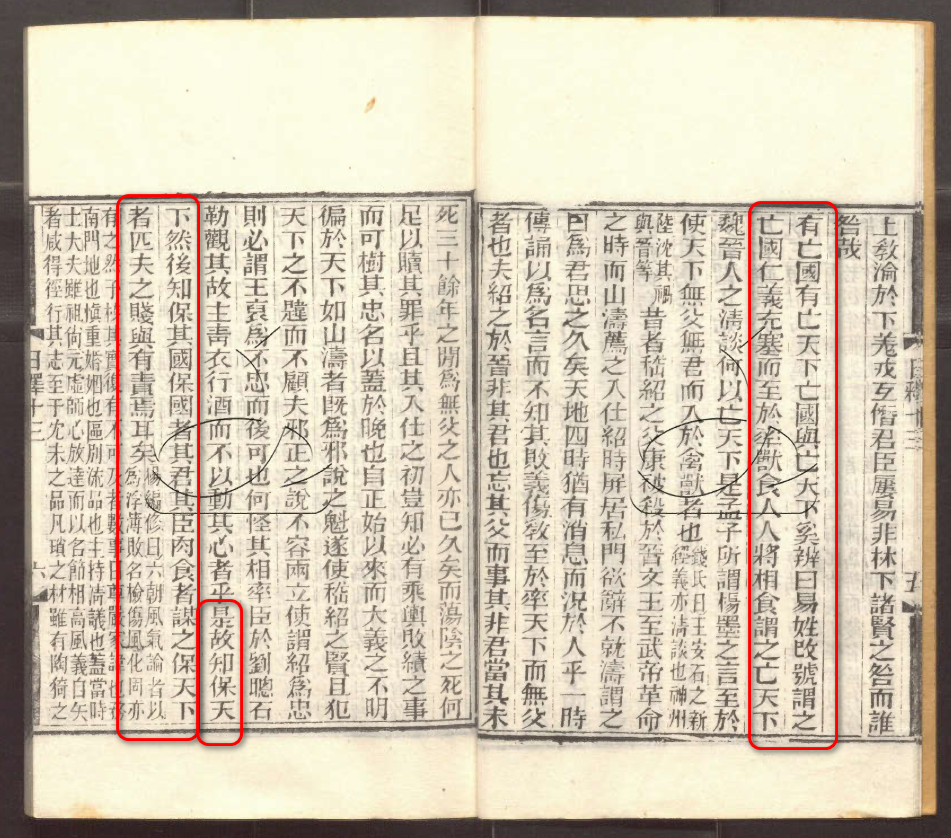 上敎淪於下羌戎互僭君臣屢易非林下諸賢之咎而誰
咎哉
有亡國有亡天下亡國與亡天下奚辨曰易姓改號謂之
亡國仁義充塞而至於率獸食人人將相食謂之亡天下
魏晉人之淸談何以亡天下是孟子所謂楊墨之言至於
使天下無父無君而入於禽獸者也錢氏曰王安石之新
經義亦淸談也神州
陸沈其禍
與晉等昔者嵇紹之父康被殺於晉文王至武帝革命
之時而山濤薦之入仕紹時屏居私門欲辭不就濤謂之
曰爲君思之久矣天地四時猶有消息而況於人乎一時
傳誦以爲名言而不知其敗義傷敎至於率天下而無父
者也夫紹之於晉非其君也忘其父而事其非君當其未
死三十餘年之閒爲無父之人亦已久矣而蕩陰之死何
足以贖其罪乎且其入仕之初豈知必有乘輿敗績之事
而可樹其忠名以蓋於晚也自正始以來而大義之不明
徧於天下如山濤者旣爲邪說之魁遂使嵇紹之賢且犯
天下之不韙而不顧夫邪正之說不容兩立使謂紹爲忠
則必謂王裒爲不忠而後可也何怪其相率臣於劉聰石
勒觀其故主靑衣行酒而不以動其心者乎是故知保天
下然後知保其國保國者其君其臣肉食者謀之保天下
者匹夫之賤與有責焉耳矣楊編修曰六朝風氣論者以
爲浮薄敗名檢傷風化固亦
有之然予核其實復有不可及者數事曰尊嚴家諱也矜
南門地也愼重婚姻也區別流品也主持淸議也蓋當時
士大夫雖祖尙元虛師心放達而以名節相高風義自矢
者咸得徑行其志至于冗末之品凡瑣之材雖有陶猗之
日知錄十三
五
日釋十三
六